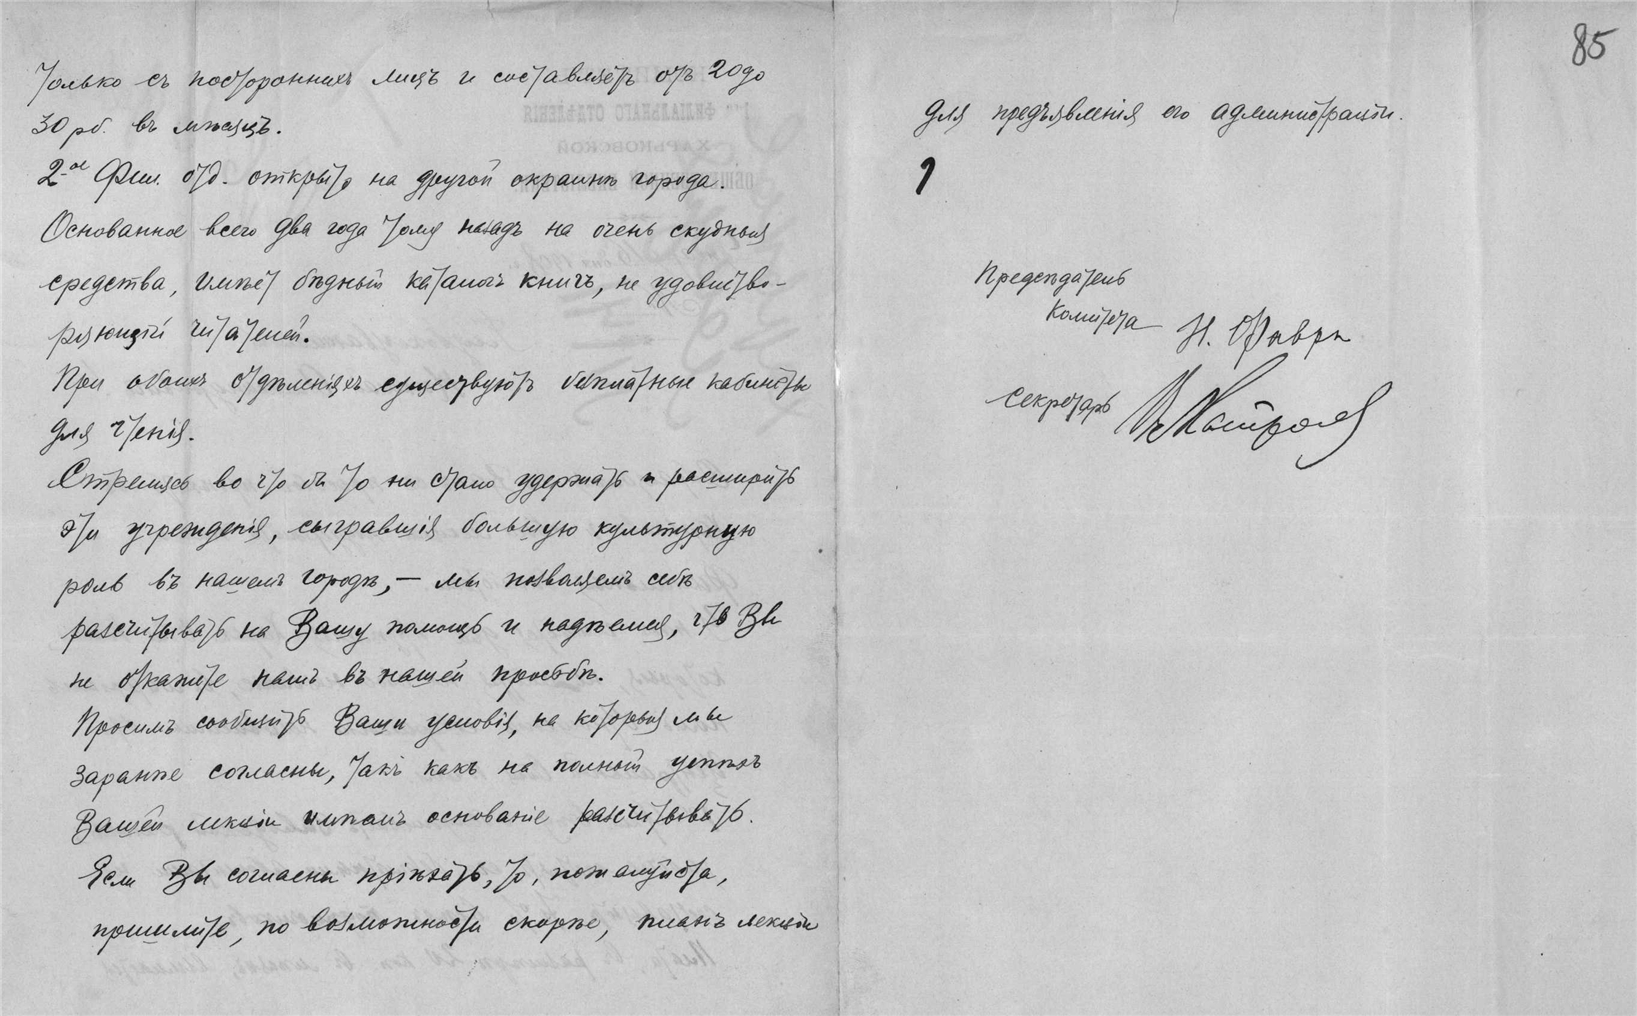 только съ постороннихъ лицъ и составляетъ отъ 20 до
30 рб. въ мѣсяцъ.
2-ое Фил. отд. открыто на другой окраинѣ города.
Основанное всего два года тому назадъ на очень скудныя
средства, имѣетъ бѣдный каталогъ книгъ, не удовлетво-
ряющій читателей.
При обоихъ отдѣленіяхъ существуютъ безплатные кабинеты
для чтенія.
Стремясь во что бы то ни стало удержать и расширить
эти учрежденія, сыгравшія большую культурную
роль въ нашемъ городѣ, — мы позволяемъ себѣ
разсчитывать на Вашу помощь и надѣемся, что Вы
не откажите намъ въ нашей просьбѣ.
Просимъ сообщить Ваши условія, на которыя мы
заранѣе согласны, такъ какъ на полный успѣхъ
Вашей лекціи имѣемъ основаніе разсчитывать.
Если Вы согласны пріѣхать, то, пожалуйста,
пришлите, по возможности скорѣе, планъ лекціи
85
для предъявленія его администраціи.
Предсѣдатель
Комитета
Секретарь